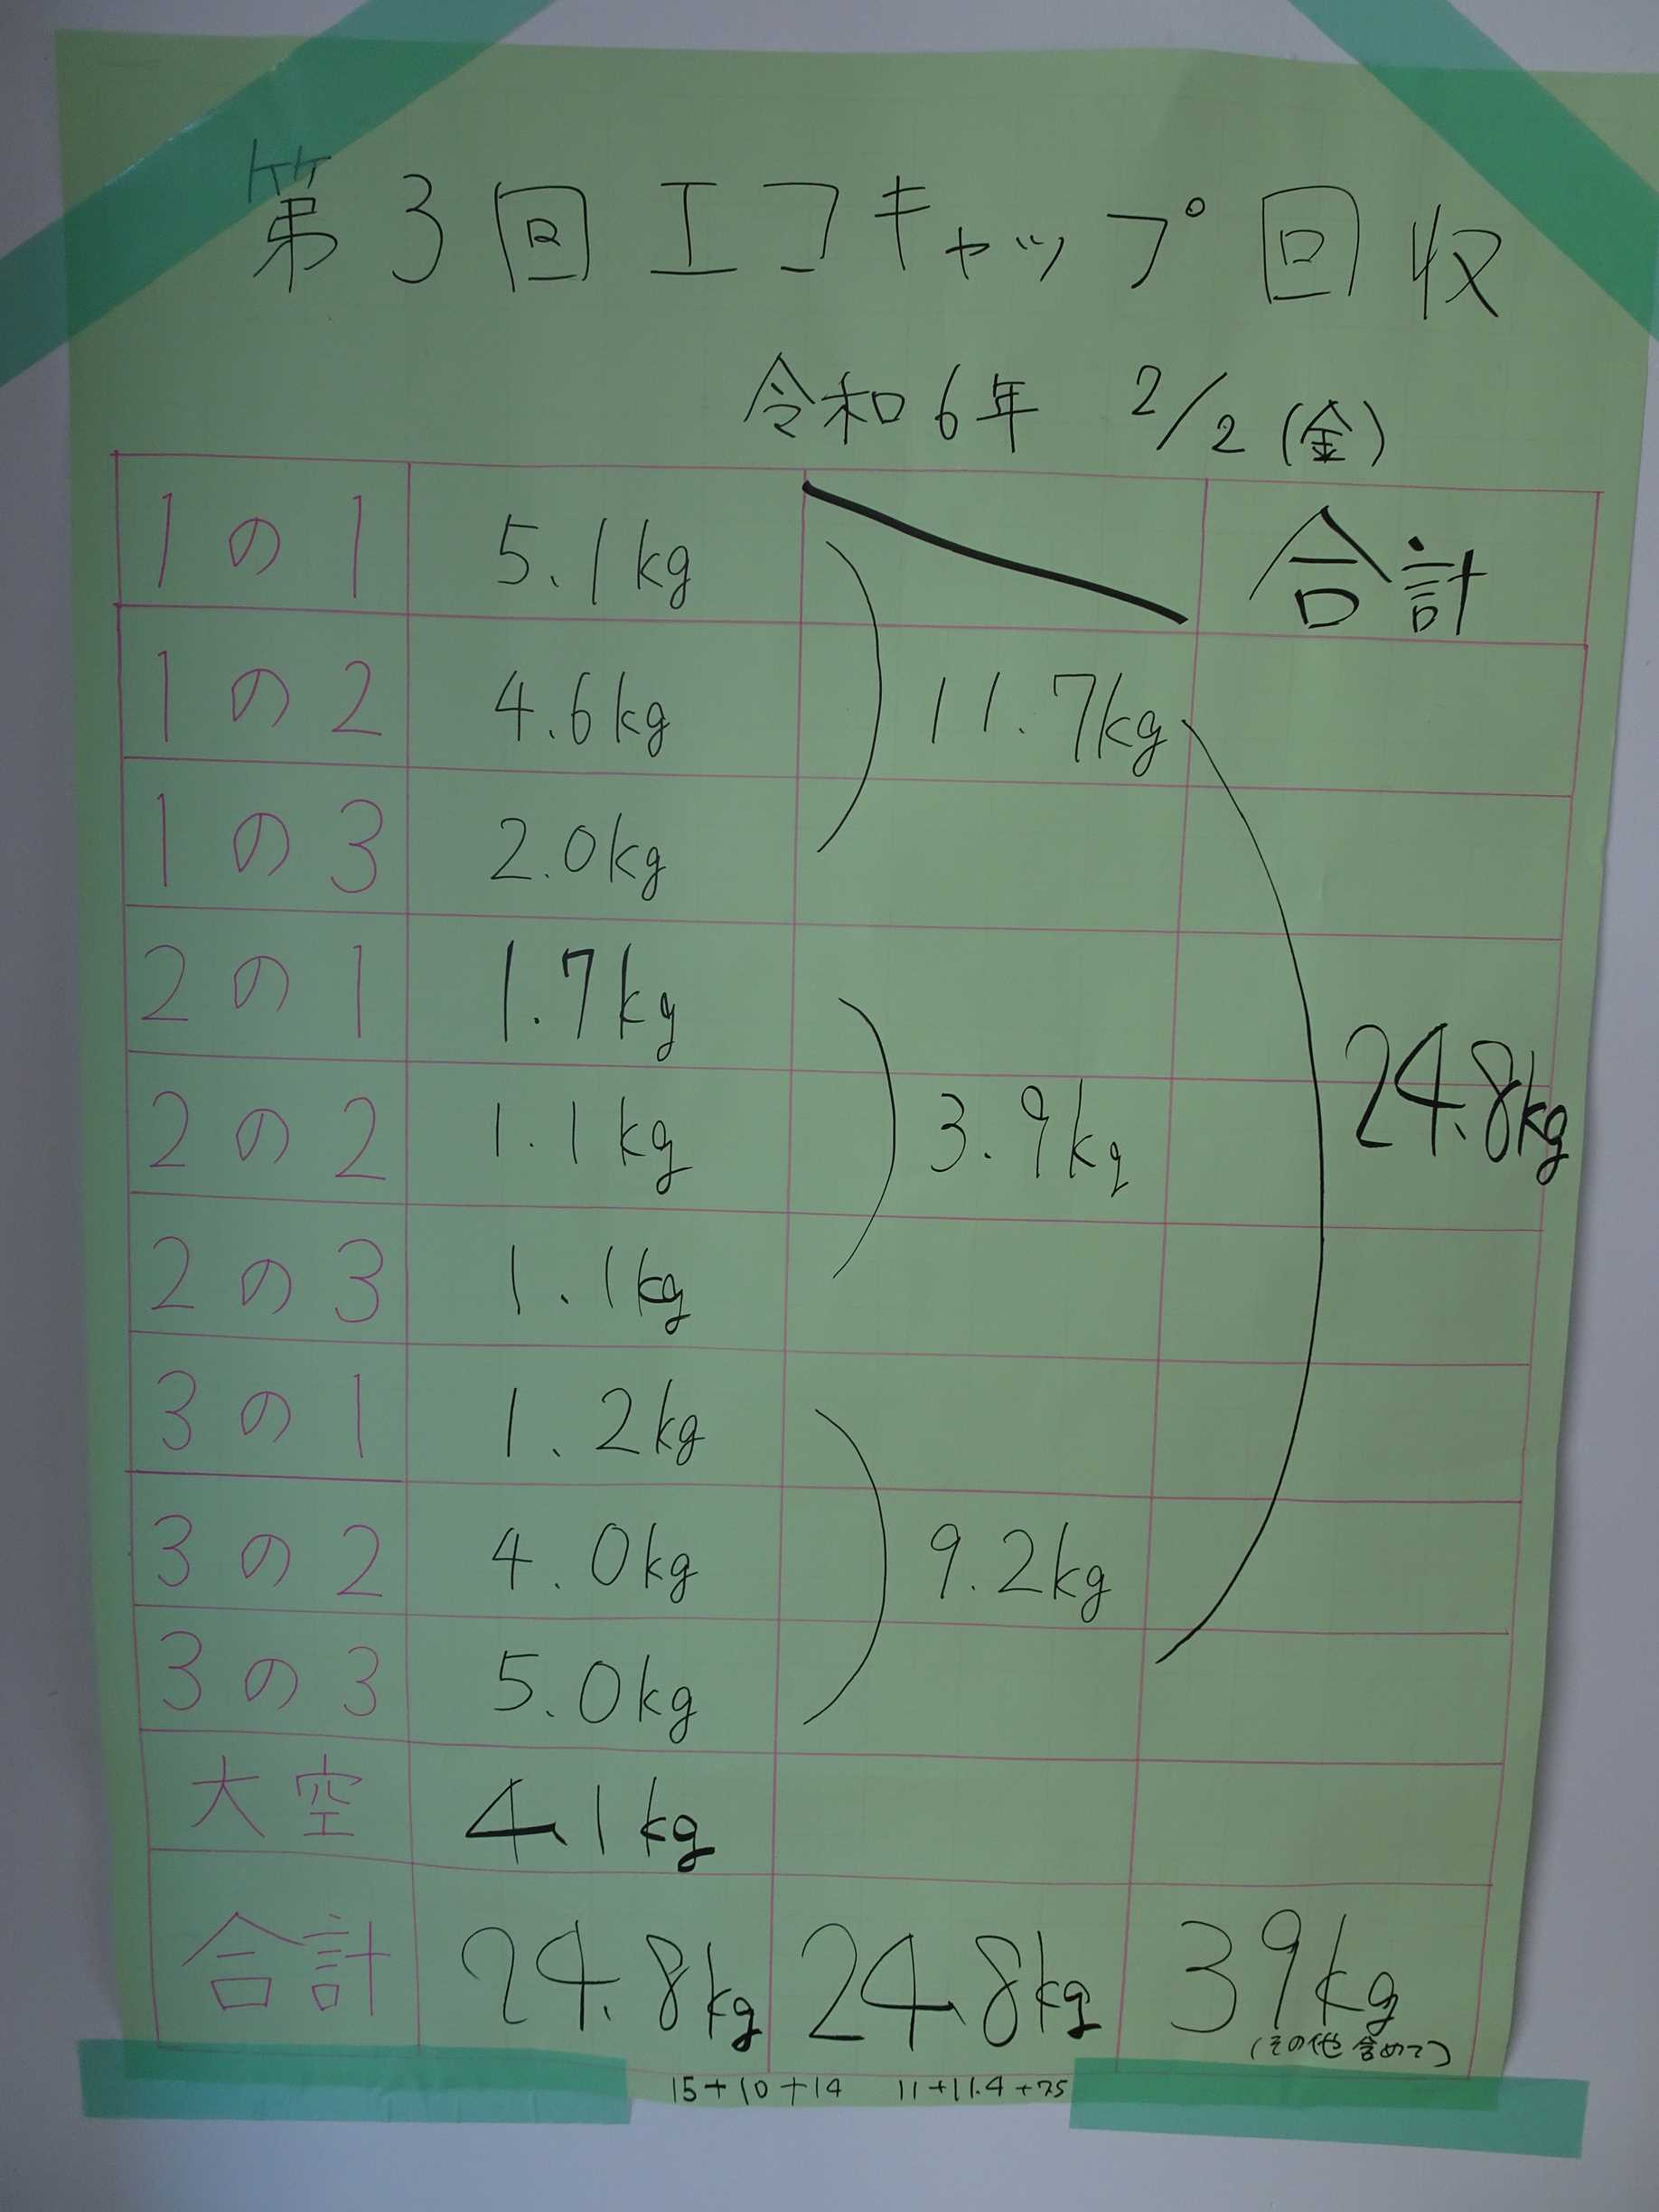 第3回エコキャップ回収
令和6年 2/2(金)
1の1 5.1kg 合計
1の2 4.6kg 11.7kg
1の3 2.0kg
2の1 1.7kg
2の2 1.1kg 3.9kg 24.8kg
2の3 1.1kg
3の1 1.2kg
3の2 4.0kg 9.2kg
3の3 5.0kg
大空 4.1kg
合計 24.8kg 24.8kg 39kg
(その他含めて)
15+10+14 11+11.4+75